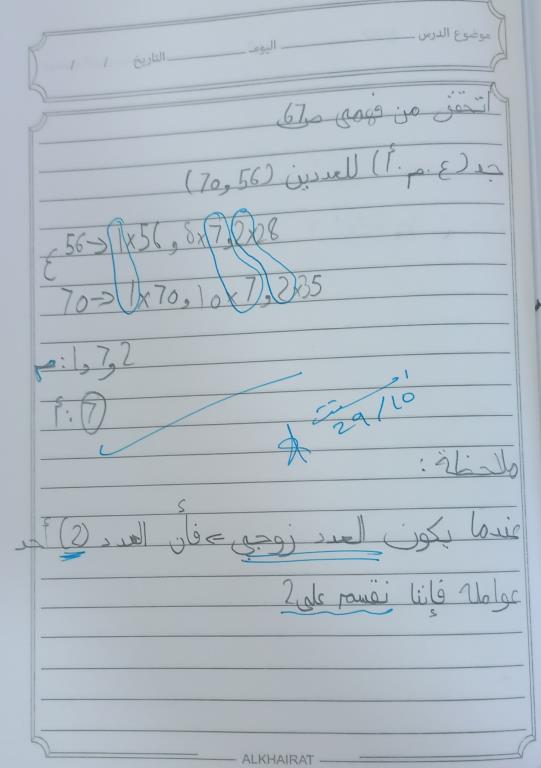 موضوع الدرس اليوم التاريخ / /
اتحقق من فهمي ص67
جد (ع.م.أ) للعددين (56 و 70)
ع 56 → 1×56 , 8×7 , 2×28
70 → 1×70 , 10×7 , 2×35
م: 1 , 7 , 2
أ: 7
احسنت
29/10
ملاحظة :
عندما يكون العدد زوجي => فأن العدد (2) أحد
عوامله فإننا نقسم على 2
ALKHAIRAT